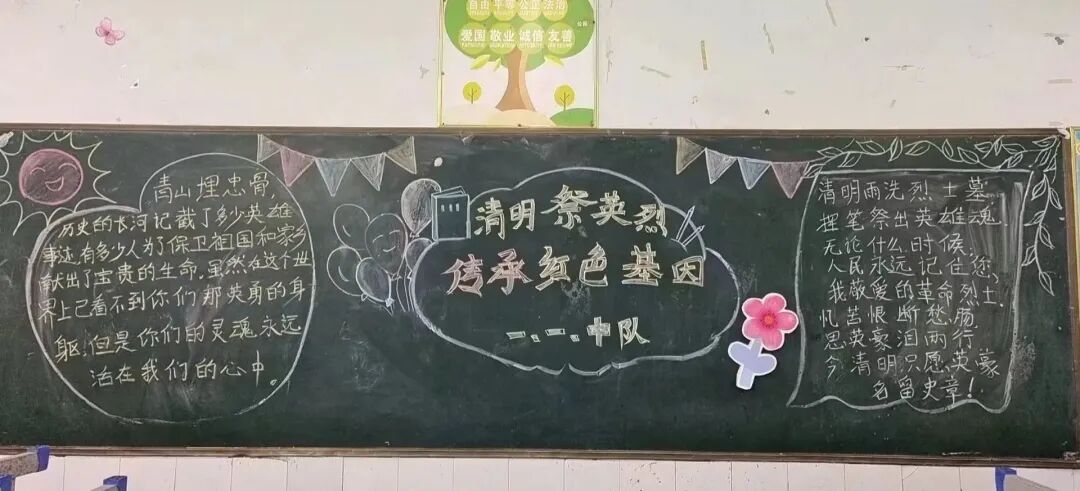 自由 平等 公正 法治
爱国 敬业 诚信 友善
青山埋忠骨,
历史的长河记载了多少英雄
事迹,有多少人为了保卫祖国和家乡
献出了宝贵的生命。虽然在这个世
界上已看不到你们那英勇的身
躯,但是你们的灵魂永远
活在我们的心中。
清明祭英烈
传承红色基因
一.一.中队
清明雨洗烈士墓
握笔祭出英雄魂.
无论什么时候,
人民永远记住您,
我敬爱的革命烈士.
忆苦恨断愁肠
思英豪泪两行
今清明只愿英豪
名留史章!